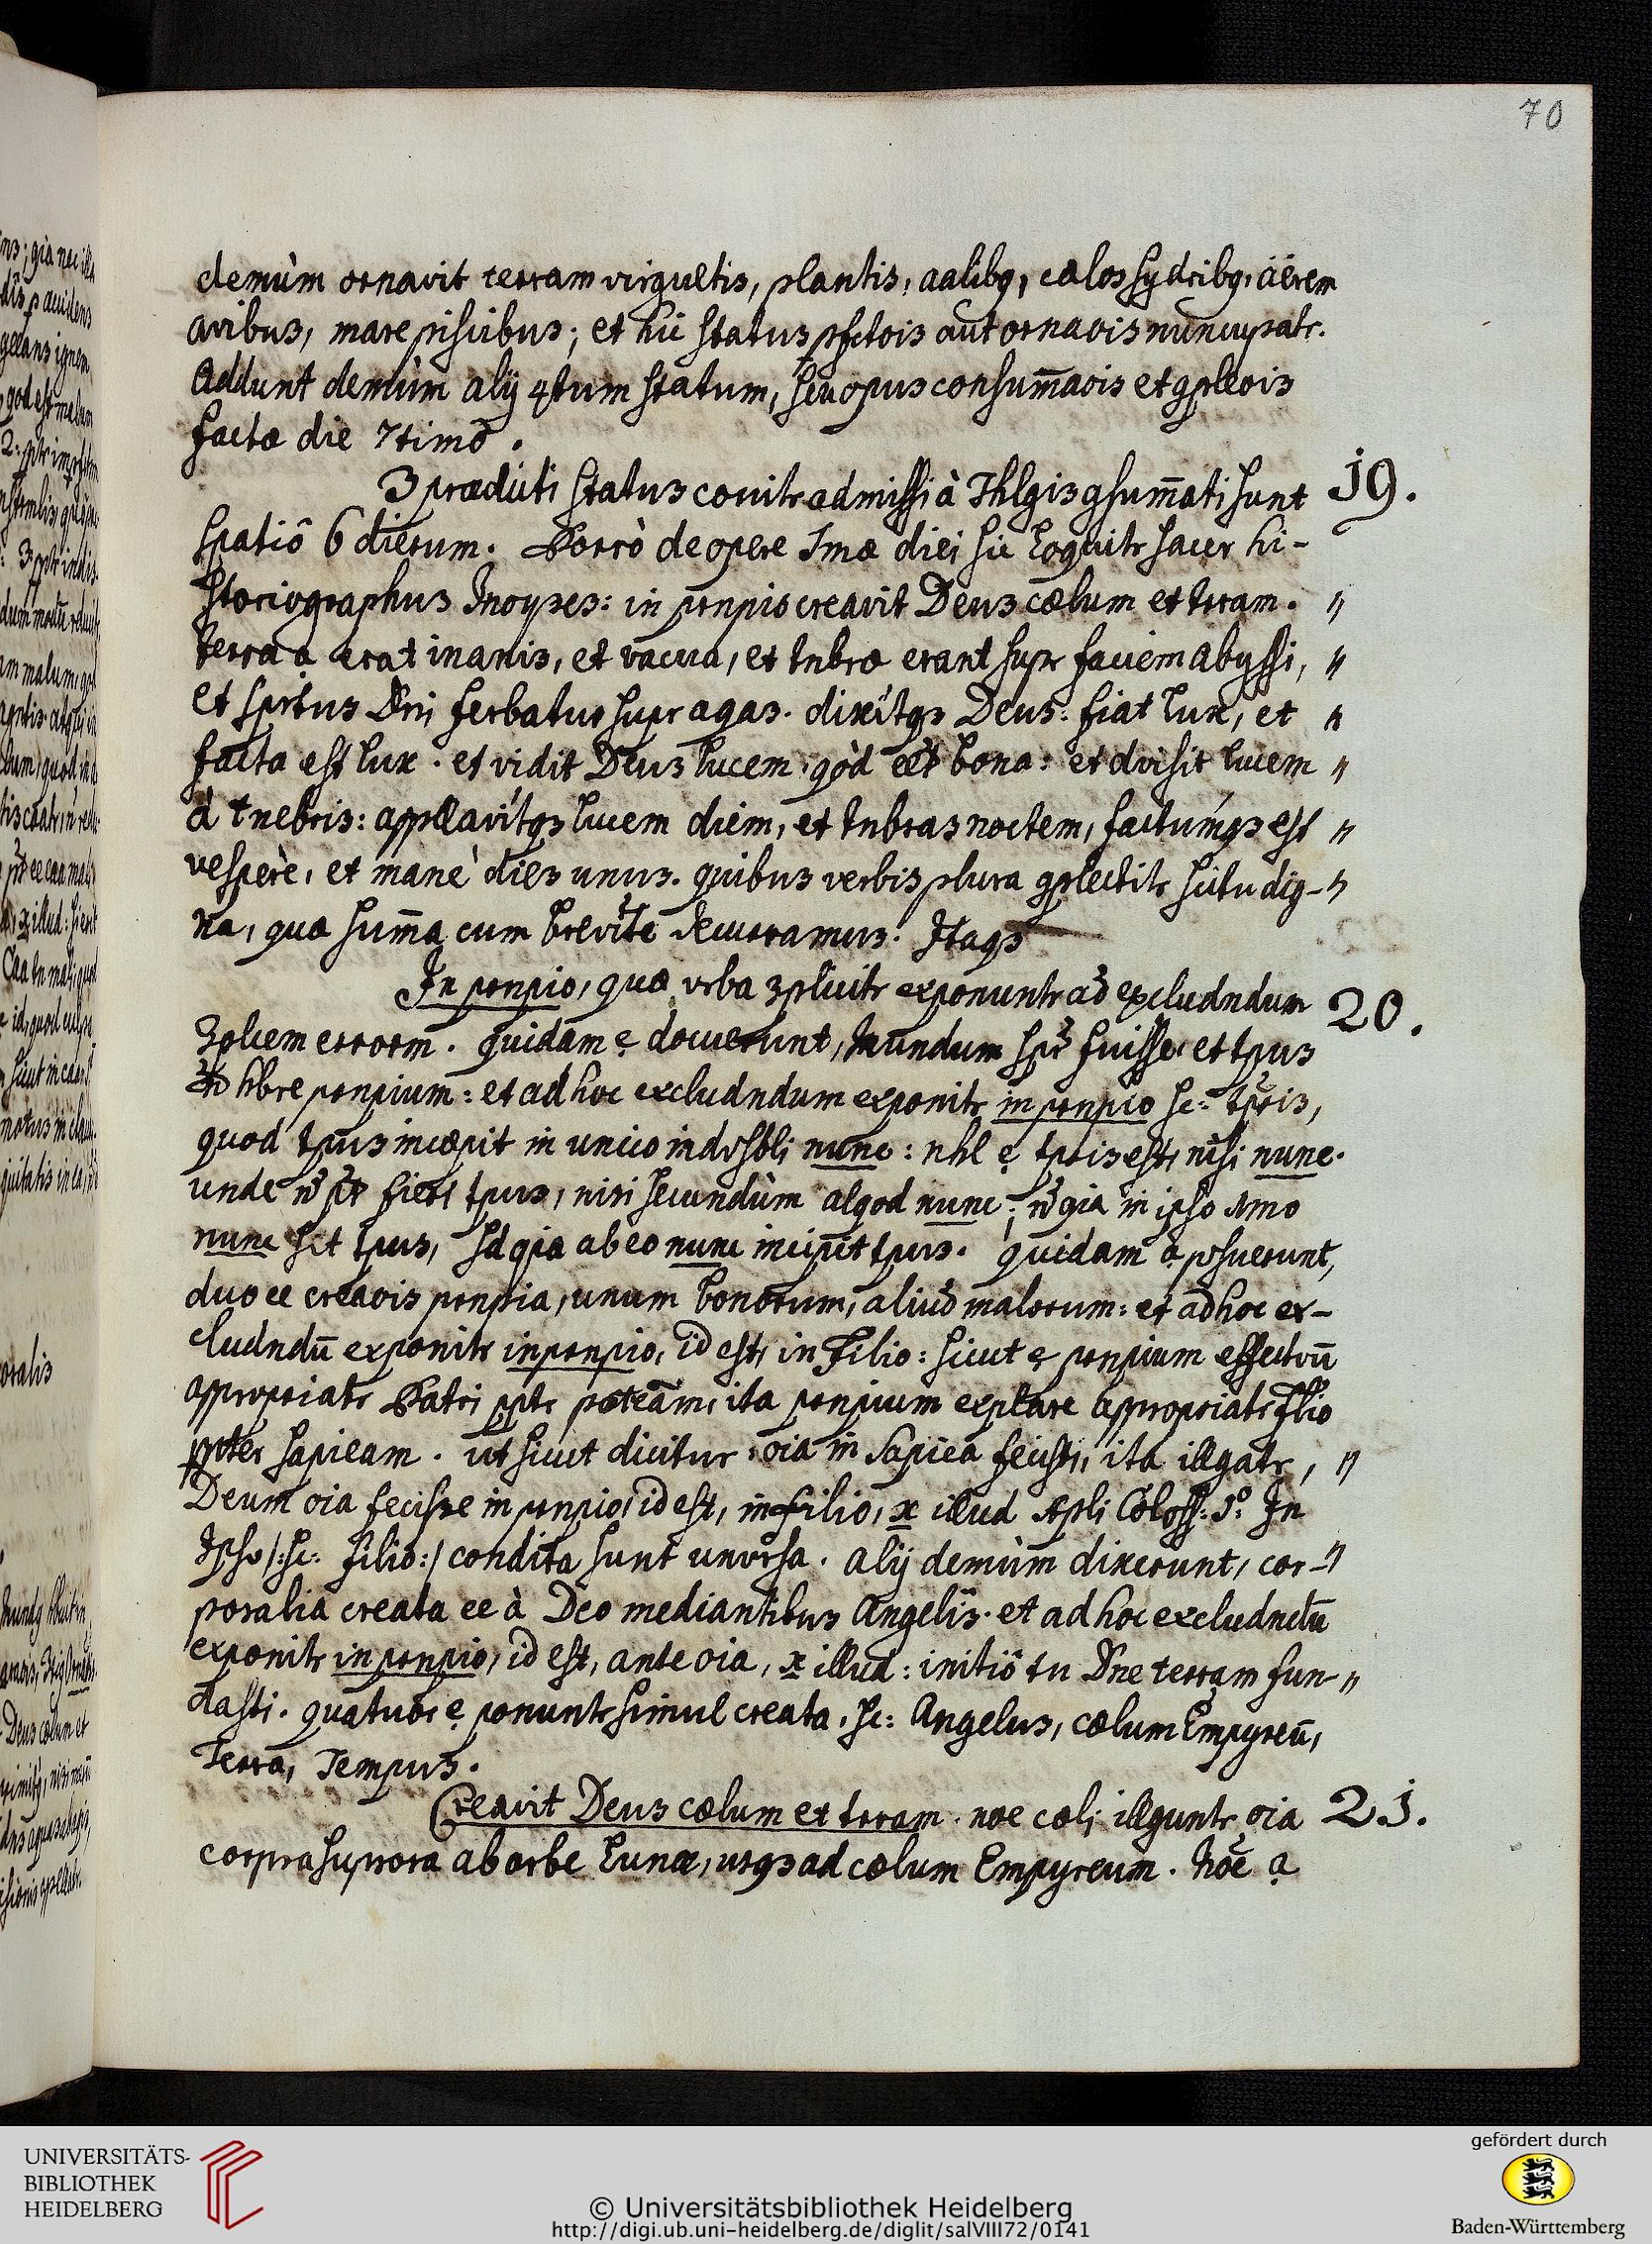 70
demùm ornavit terram virgultis, plantis, aalibq, cælos sydribq, äërem
avibus, mare piscibus; et hic status pfctois aut ornaois nuncupatr.
Addunt demùm alij 4tum statum, seu opus consum̄aois et gpleois
factæ die 7timô.
3 prædicti status coniitr admissi à Thlgis gsum̄ati sunt 19.
spatiô 6 dierum. Porrò de opere 1mæ diei sic loquitr sacer hi-
storiographus Moyses: in prnpio creavit Deus cœlum et trram. "
terra a erat inanis, et vacua, et tnbræ erant supr faciem abyssi, "
et spritus Dni ferbatur supr aqas. dixítqs Deus: fiat lux, et "
facta est lux. et vidit Deus lucem, qòd eêt bona: et dvisit lucem "
à tnebris: appllavítqs lucem diem, et tnbras noctem, factúmqs est "
vespèrè, et manè dies unus. quibus verbis plura gplectitr scitu dig- "
na, quæ sum̄a cum brevitê decurramus. Itaqs
In prnpio, quæ vrba 3pliciter exponuntr ad excludndum 20.
3plicem errorm. quidam e docuerunt, Mundum spr fuisse, et tpus
n̄ hbre prnpium: et ad hoc excludndum exponitr in prnpio sc: tpris,
quod tpus incœpit in unico indvsbli nunc: nhl e tpris est, nisi nunc.
unde n̄ pt fieri tpus, nisi secundùm alqod nunc; n̄ qia in ipso 1mo
nunc sit tpus, sd qia ab eo nunc incipit tpus. quidam a psuerunt,
duo ee creaois prnpia, unum bonorum, aliud malorum: et ad hoc ex-
cludndū exponitr in prnpio, id est, in Filio: sicut e prnpium effectivū
appropriatr Patri pptr potēam, ita prnpium explare appropriatr Flio
ppter sapieam. ut sicut dicitur: oia in Sapiēa fecisti, ita illgatr, "
Deum oia fecisse in prnpio, id est, in filio, x illud Apli Coloss: 1º. In
Ipso /:sc: filio:/ condita sunt unvrsa. alij demùm dixerunt, cor- "
poralia creata ee à Deo mediantibus Angelis. et ad hoc excludndū
exponitr in prnpio, id est, ante oia, x illud: initiô tu Dne terram fun- "
dasti. quatuor e ponuntr simul creata. sc: Angelus, cœlum Empyreū,
Terra, Tempus.
Creavit Deus cœlum et trram. noe cæli illguntr oia 21.
corpra suprora ab orbe Lunæ, usqs ad cœlum Empyreum. Noe a
UNIVERSITÄTS-
BIBLIOTHEK
HEIDELBERG
© Universitätsbibliothek Heidelberg
http://digi.ub.uni-heidelberg.de/diglit/salVIII72/0141
gefördert durch
Baden-Württemberg